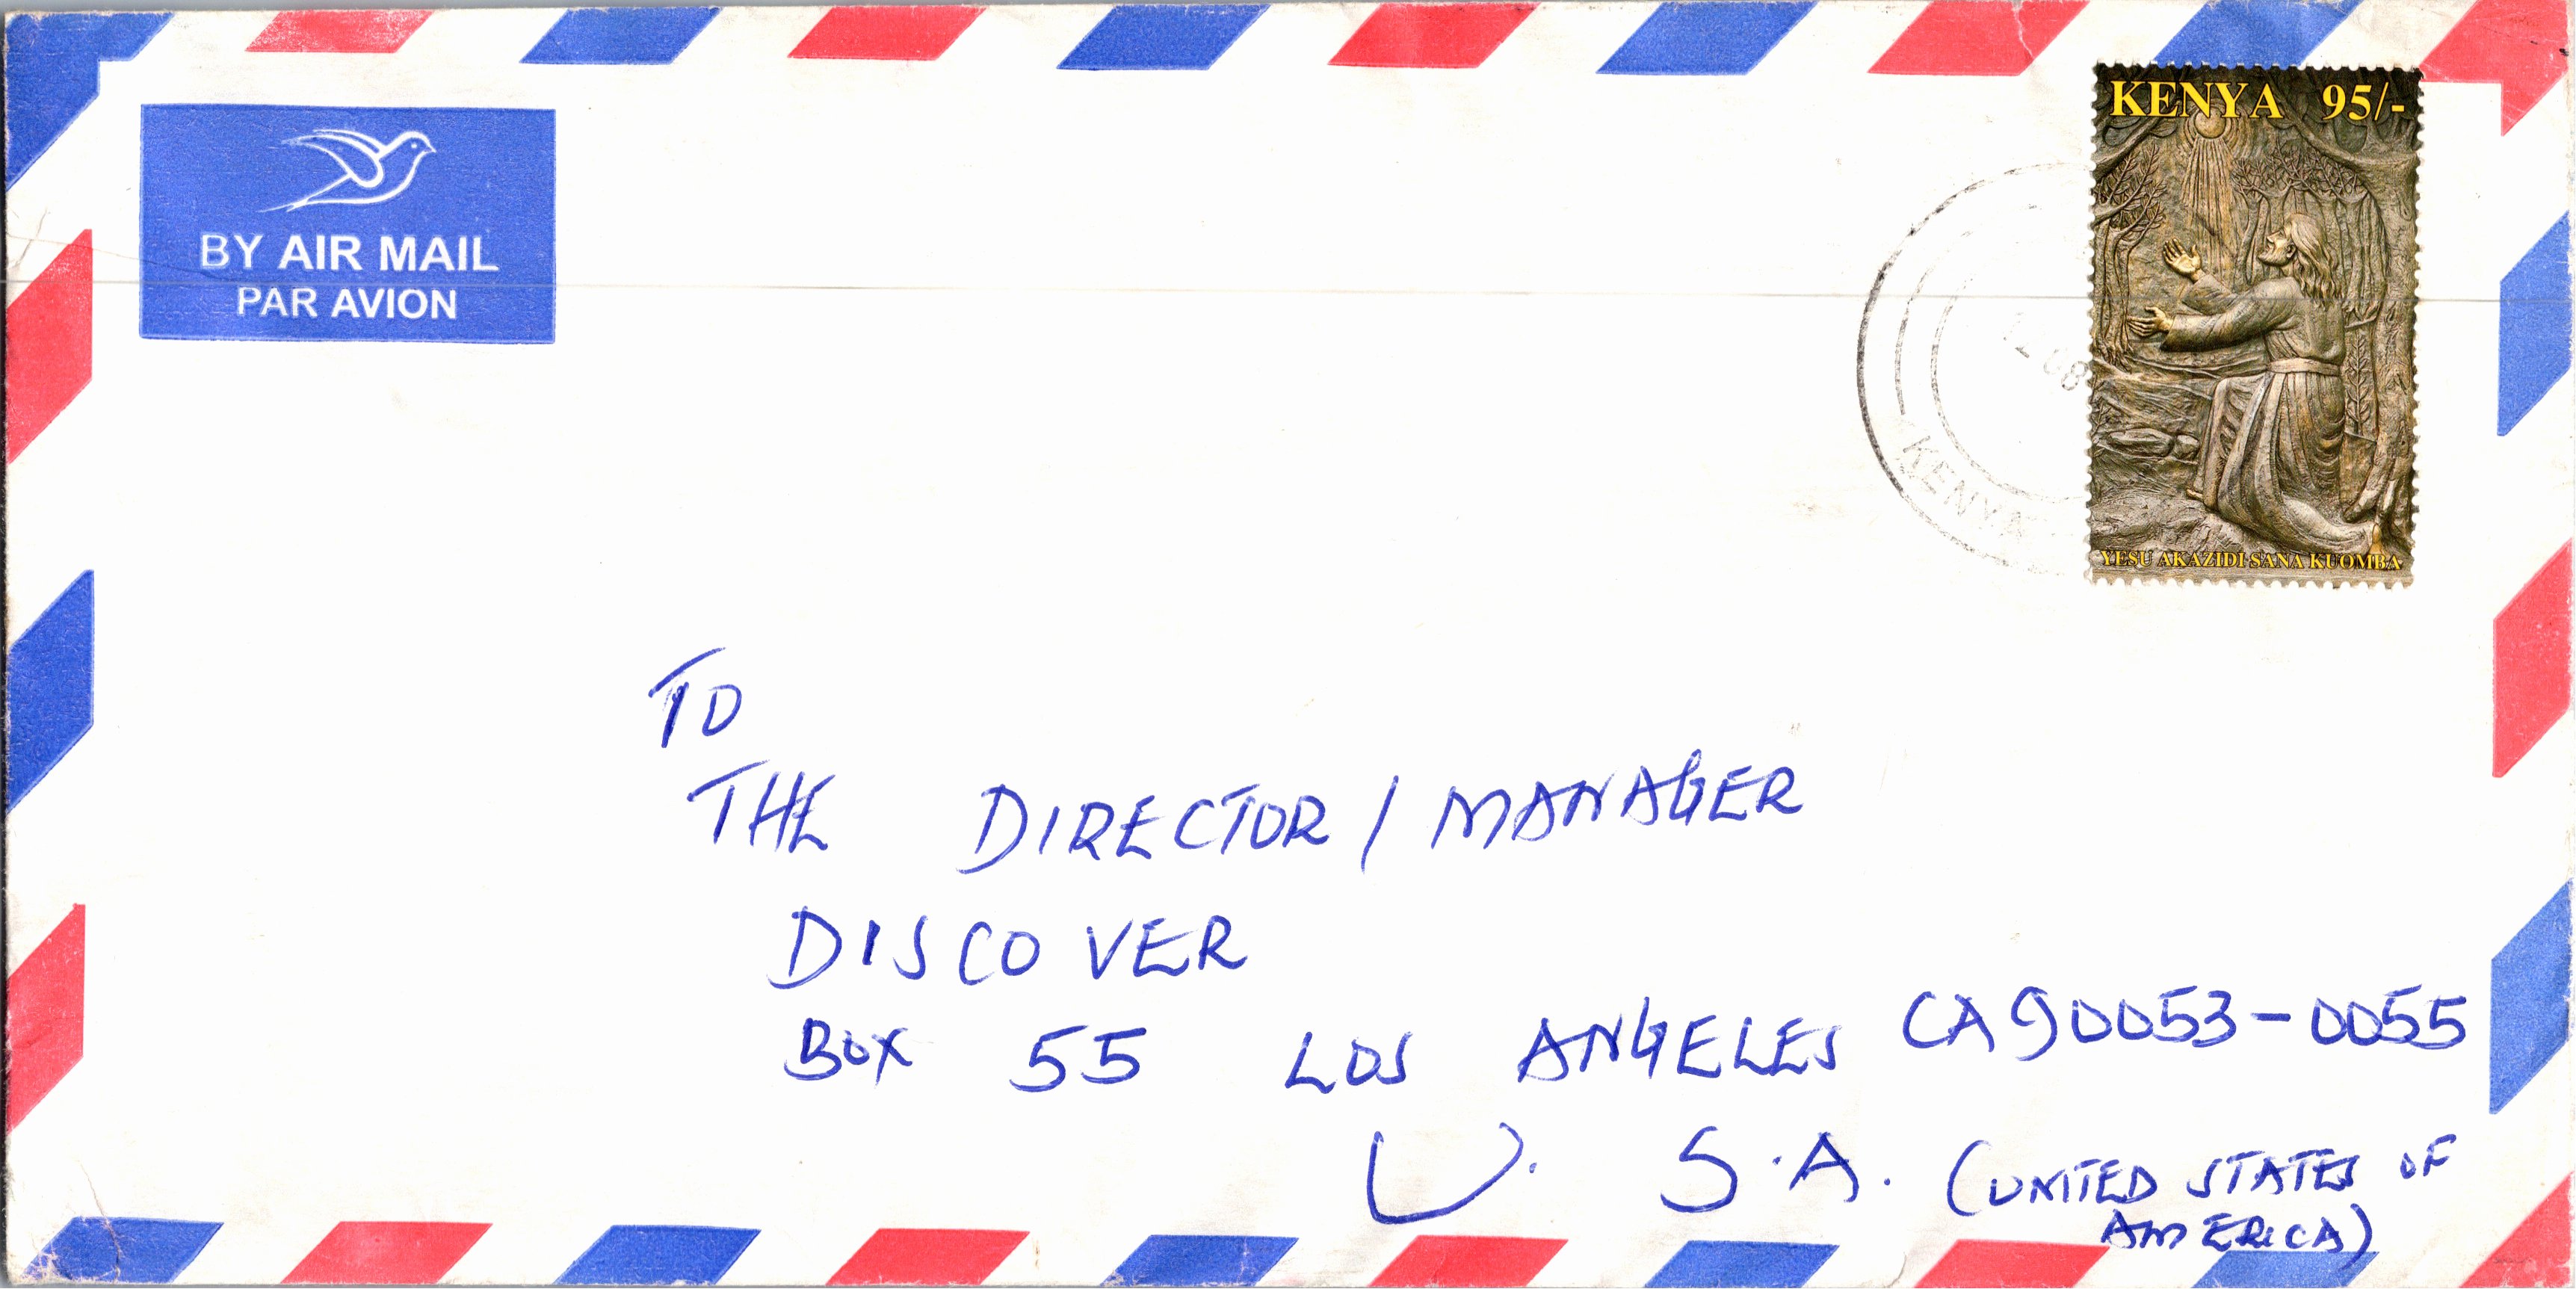 BY AIR MAIL
PAR AVION
KENYA 95/-
KENYA
YESU AKAZIDI SANA KUOMBA
TO
THE DIRECTOR / MANAGER
DISCOVER
BOX 55 LOS ANGELES CA 90053-0055
U.S.A. (UNITED STATES OF
AMERICA)